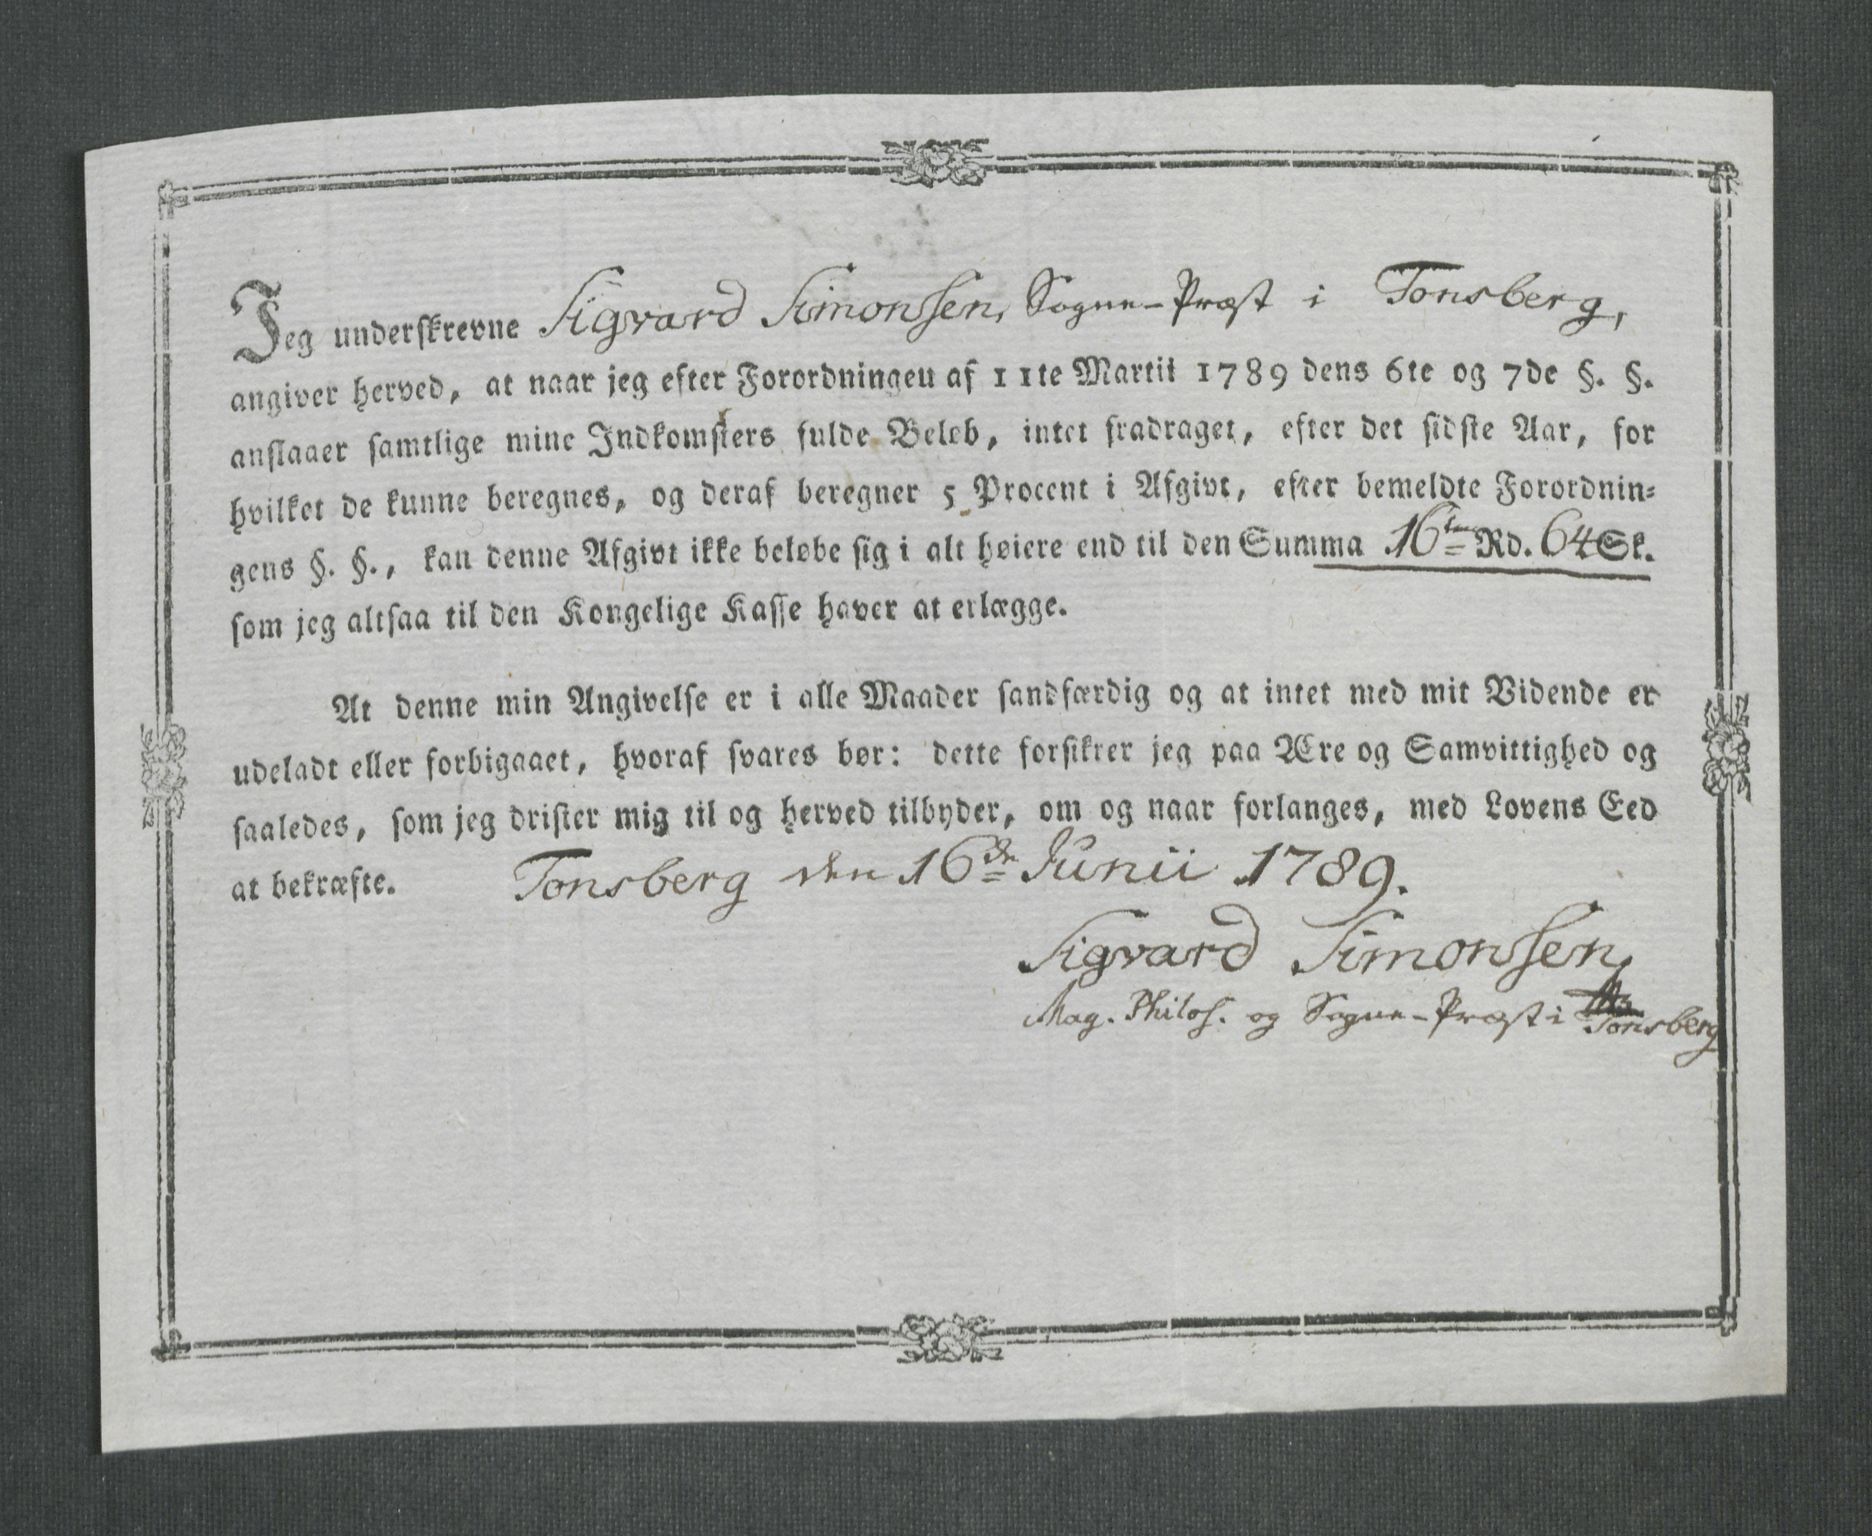 Jeg underskrevne Sigvard Simonsen, Sogne-Præst i Tonsberg,
angiver herved, at naar jeg efter Forordningen af 11te Martii 1789 dens 6te og 7de §. §.
anslaaer samtlige mine Indkomsters fulde Beløb, intet fradraget, efter det sidste Aar, for
hvilket de kunne beregnes, og deraf beregner 5 Procent i Afgivt, efter bemeldte Forordnin=
gens §. §., kan denne Afgivt ikke beløbe sig i alt høiere end til den Summa 16ten Rd. 64 Sk.
som jeg altsaa til den Kongelige Kasse haver at erlægge.
At denne min Angivelse er i alle Maader sandfærdig og at intet med mit Vidende er
udeladt eller forbigaaet, hvoraf svares bør: dette forsikrer jeg paa Ære og Samvittighed og
saaledes, som jeg drister mig til og herved tilbyder, om og naar forlanges, med Lovens Eed
at bekræfte. Tonsberg den 16de Junii 1789.
Sigvard Simonsen,
Mag. Philos. og Sogne-Præst i Tonsberg